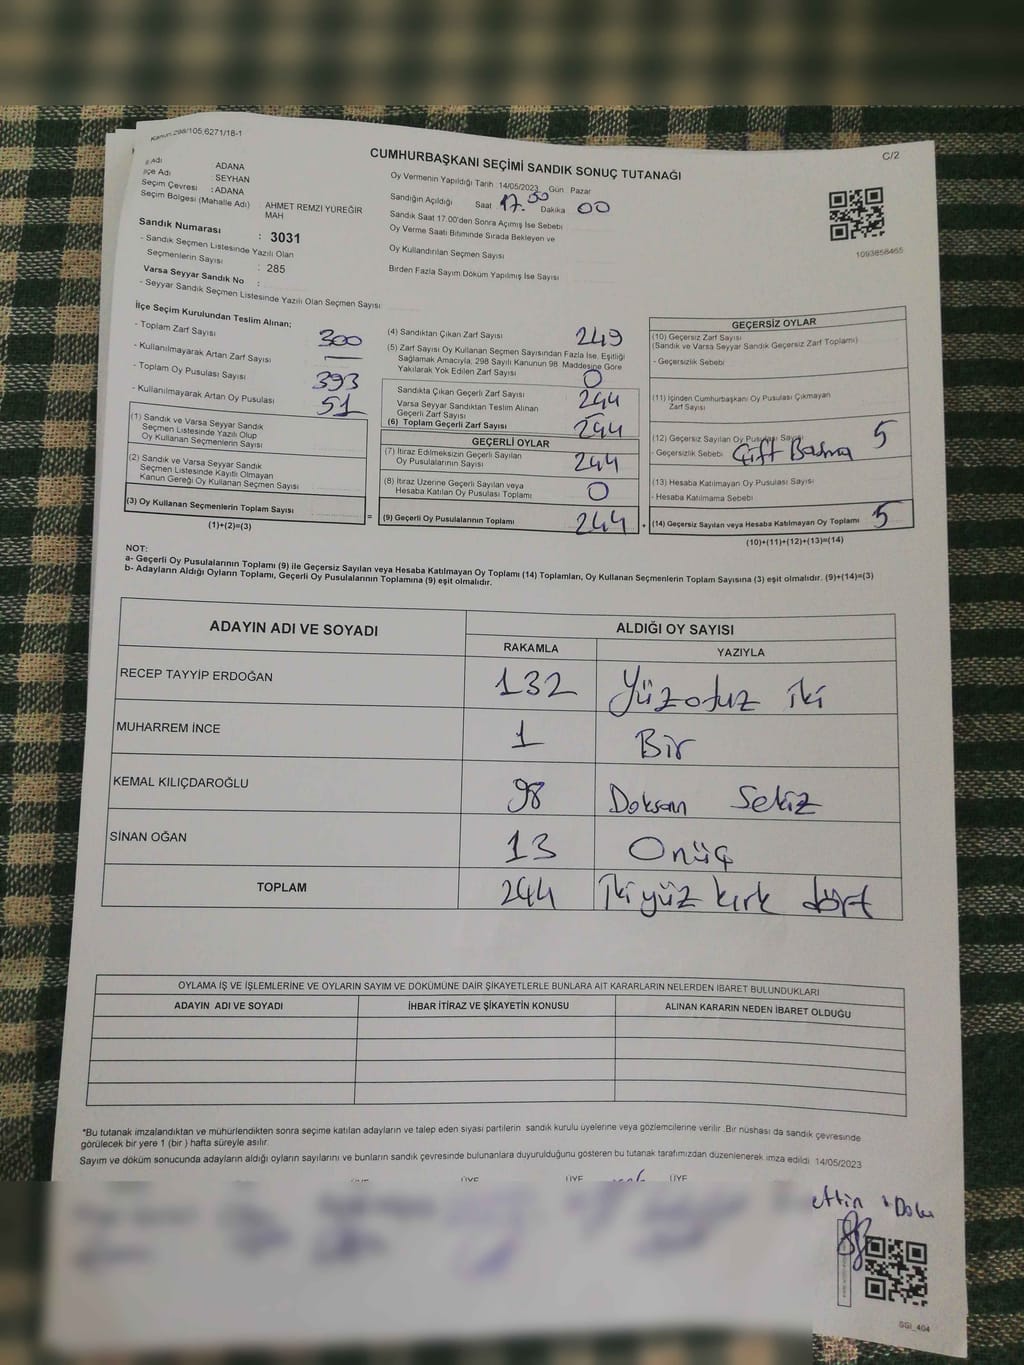 Kanun:298/105,6271/18-1
C/2
CUMHURBAŞKANI SEÇİMİ SANDIK SONUÇ TUTANAĞI
İl Adı ADANA
İlçe Adı SEYHAN
Seçim Çevresi : ADANA
Seçim Bölgesi (Mahalle Adı) : AHMET REMZİ YÜREĞİR
MAH
Sandık Numarası : 3031
- Sandık Seçmen Listesinde Yazılı Olan
Seçmenlerin Sayısı : 285
Varsa Seyyar Sandık No :
- Seyyar Sandık Seçmen Listesinde Yazılı Olan Seçmen Sayısı:
Oy Vermenin Yapıldığı Tarih :14/05/2023 Gün Pazar
Sandığın Açıldığı Saat 17.00 Dakika 00
Sandık Saat 17.00'den Sonra Açımış İse Sebebi
Oy Verme Saati Bitiminde Sırada Bekleyen ve
Oy Kullandırılan Seçmen Sayısı
Birden Fazla Sayım Döküm Yapılmış İse Sayısı
1093858465
İlçe Seçim Kurulundan Teslim Alınan;
- Toplam Zarf Sayısı 300
- Kullanılmayarak Artan Zarf Sayısı —
- Toplam Oy Pusulası Sayısı 393
- Kullanılmayarak Artan Oy Pusulası 51
(1) Sandık ve Varsa Seyyar Sandık
Seçmen Listesinde Yazılı Olup
Oy Kullanan Seçmenlerin Sayısı
(2) Sandık ve Varsa Seyyar Sandık
Seçmen Listesinde Kayıtlı Olmayan
Kanun Gereği Oy Kullanan Seçmen Sayısı
(3) Oy Kullanan Seçmenlerin Toplam Sayısı
(1)+(2)=(3)
(4) Sandıktan Çıkan Zarf Sayısı 249
(5) Zarf Sayısı Oy Kullanan Seçmen Sayısından Fazla İse, Eşitliği
Sağlamak Amacıyla, 298 Sayılı Kanunun 98. Maddesine Göre
Yakılarak Yok Edilen Zarf Sayısı 0
Sandıkta Çıkan Geçerli Zarf Sayısı 244
Varsa Seyyar Sandıktan Teslim Alınan
Geçerli Zarf Sayısı —
(6) Toplam Geçerli Zarf Sayısı 244
GEÇERLİ OYLAR
(7) İtiraz Edilmeksizin Geçerli Sayılan
Oy Pusulalarının Sayısı 244
(8) İtiraz Üzerine Geçerli Sayılan veya
Hesaba Katılan Oy Pusulası Toplamı 0
= (9) Geçerli Oy Pusulalarının Toplamı 244
GEÇERSİZ OYLAR
(10) Geçersiz Zarf Sayısı
(Sandık ve Varsa Seyyar Sandık Geçersiz Zarf Toplamı)
- Geçersizlik Sebebi
(11) İçinden Cumhurbaşkanı Oy Pusulası Çıkmayan
Zarf Sayısı
(12) Geçersiz Sayılan Oy Pusulası Sayısı 5
- Geçersizlik Sebebi Çift Basma
(13) Hesaba Katılmayan Oy Pusulası Sayısı
- Hesaba Katılmama Sebebi
+ (14) Geçersiz Sayılan veya Hesaba Katılmayan Oy Toplamı 5
(10)+(11)+(12)+(13)=(14)
NOT:
a- Geçerli Oy Pusulalarının Toplamı (9) ile Geçersiz Sayılan veya Hesaba Katılmayan Oy Toplamı (14) Toplamları, Oy Kullanan Seçmenlerin Toplam Sayısına (3) eşit olmalıdır. (9)+(14)=(3)
b- Adayların Aldığı Oyların Toplamı, Geçerli Oy Pusulalarının Toplamına (9) eşit olmalıdır.
ADAYIN ADI VE SOYADI ALDIĞI OY SAYISI
RAKAMLA YAZIYLA
RECEP TAYYİP ERDOĞAN 132 Yüzotuz iki
MUHARREM İNCE 1 Bir
KEMAL KILIÇDAROĞLU 98 Doksan Sekiz
SİNAN OĞAN 13 Onüç
TOPLAM 244 İkiyüz kırk dört
OYLAMA İŞ VE İŞLEMLERİNE VE OYLARIN SAYIM VE DÖKÜMÜNE DAİR ŞİKAYETLERLE BUNLARA AİT KARARLARIN NELERDEN İBARET BULUNDUKLARI
ADAYIN ADI VE SOYADI İHBAR İTİRAZ VE ŞİKAYETİN KONUSU ALINAN KARARIN NEDEN İBARET OLDUĞU
*Bu tutanak imzalandıktan ve mühürlendikten sonra seçime katılan adayların ve talep eden siyasi partilerin sandık kurulu üyelerine veya gözlemcilerine verilir. Bir nüshası da sandık çevresinde
görülecek bir yere 1 (bir ) hafta süreyle asılır.
Sayım ve döküm sonucunda adayların aldığı oyların sayılarını ve bunların sandık çevresinde bulunanlara duyurulduğunu gösteren bu tutanak tarafımızdan düzenlenerek imza edildi. 14/05/2023
ÜYE ÜYE ÜYE ÜYE
ettin
SGI_404